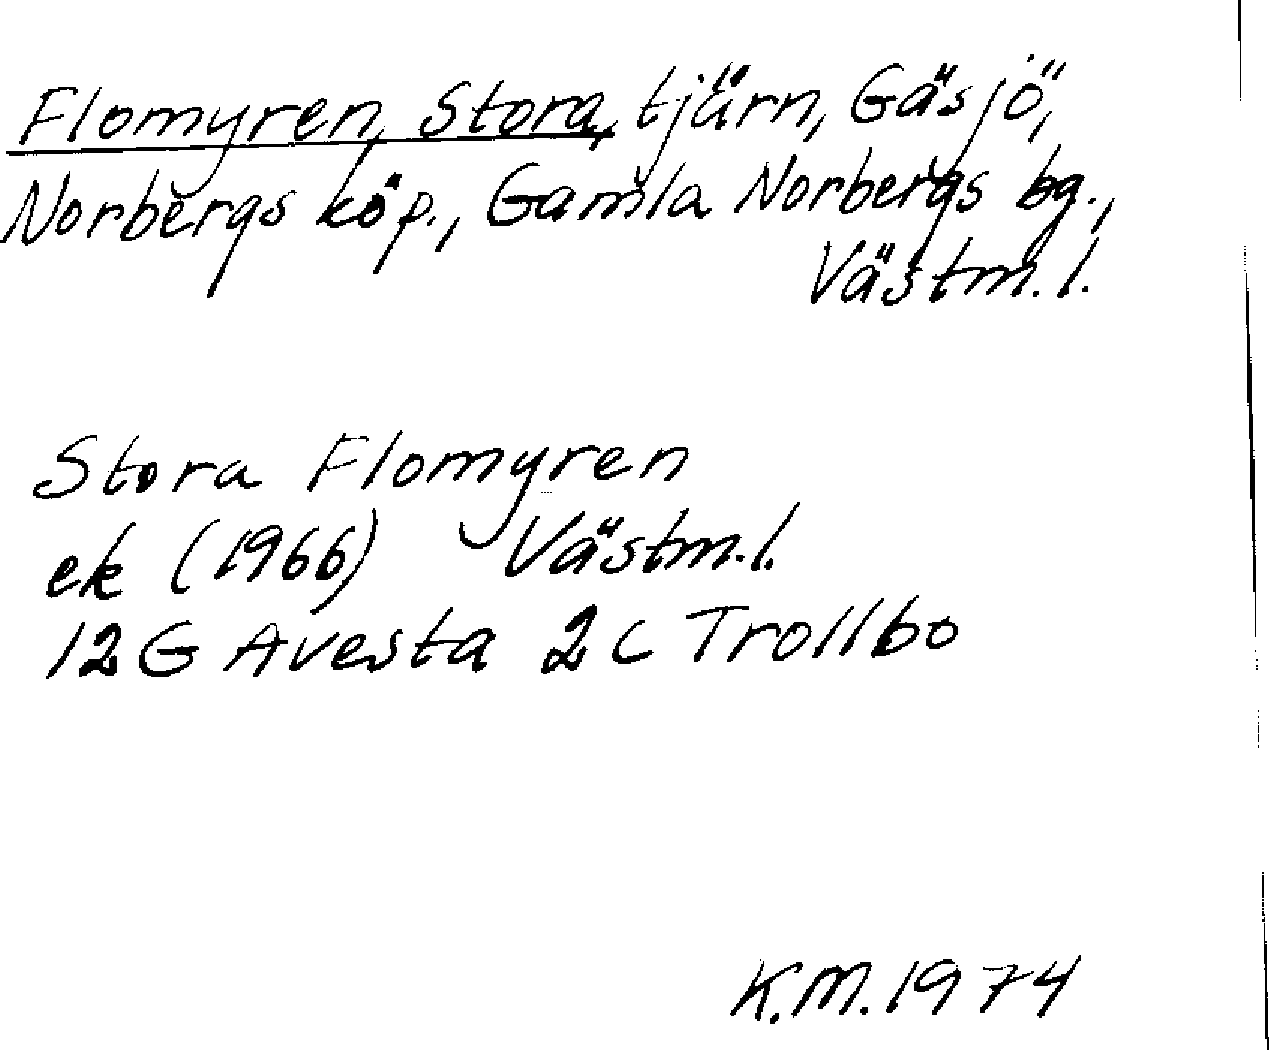 Flomyren, Stora, tjärn, Gäsjö,
Norbergs köp., Gamla Norbergs bg.,
Västm. l.
Stora Flomyren
ek (1966) Västm. l.
12 G Avesta 2 c Trollbo
K.M. 1974